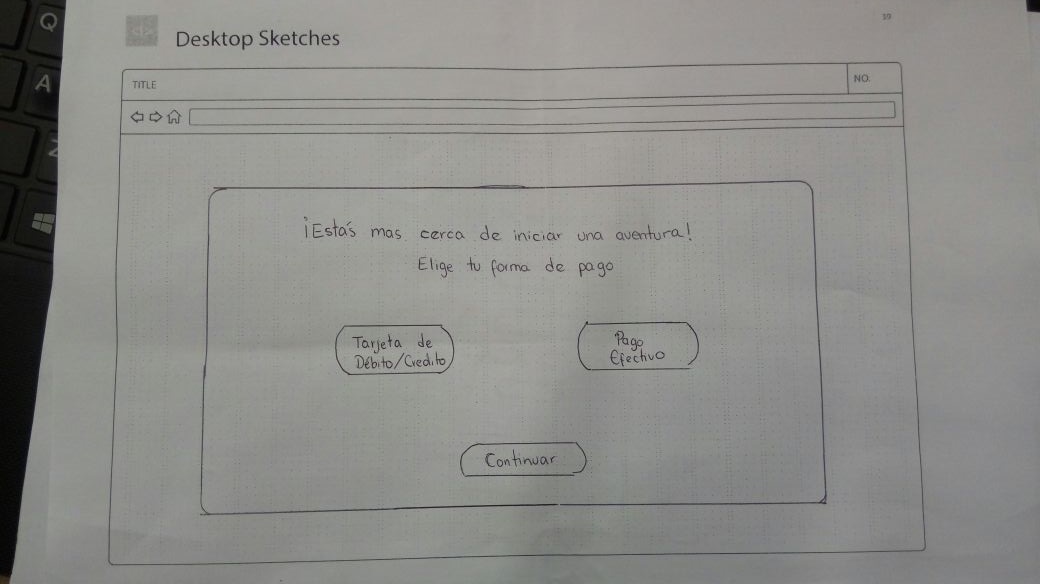 39
</>
Desktop Sketches
TITLE
NO.
Q
A
Z
¡Estás mas cerca de iniciar una aventura!
Elige tu forma de pago
Tarjeta de
Débito/Credito
Pago
Efectivo
Continuar